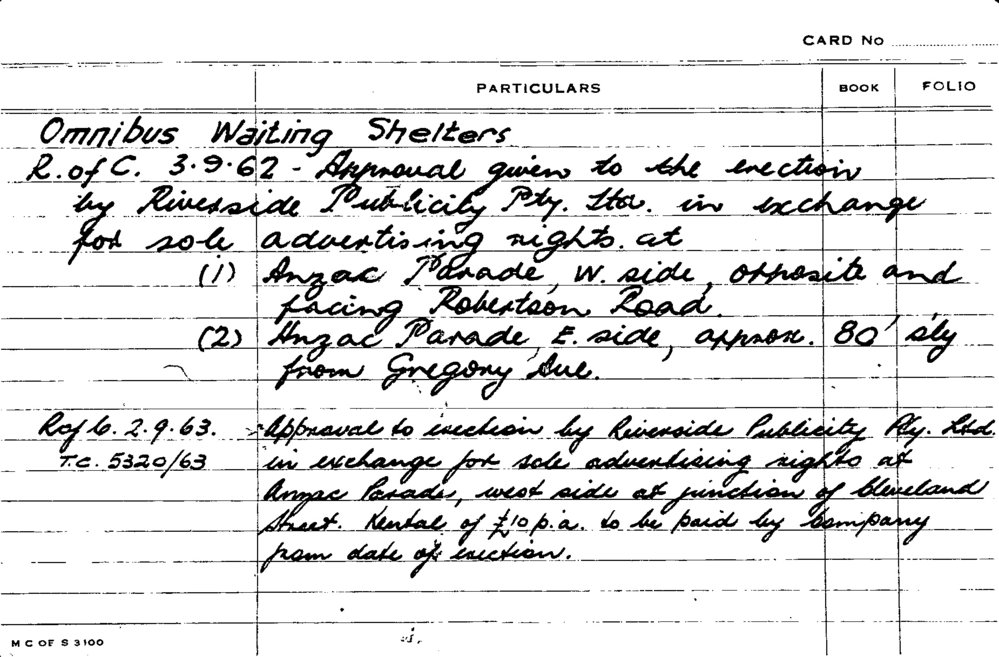 CARD No
PARTICULARS BOOK FOLIO
Omnibus Waiting Shelters
R. of C. 3.9.62 - Approval given to the erection
by Riverside Publicity Pty. Ltd. in exchange
for sole advertising rights at
(1) Anzac Parade, W. side, opposite and
facing Robertson Road.
(2) Anzac Parade, E. side, approx. 80' s'ly
from Gregory Ave.
R of C. 2.9.63. Approval to erection by Riverside Publicity Pty. Ltd.
T.C. 5320/63 in exchange for sole advertising rights at
Anzac Parade, west side at junction of Cleveland
Street. Rental of £10 p.a. to be paid by Company
from date of erection.
M C OF S 3100